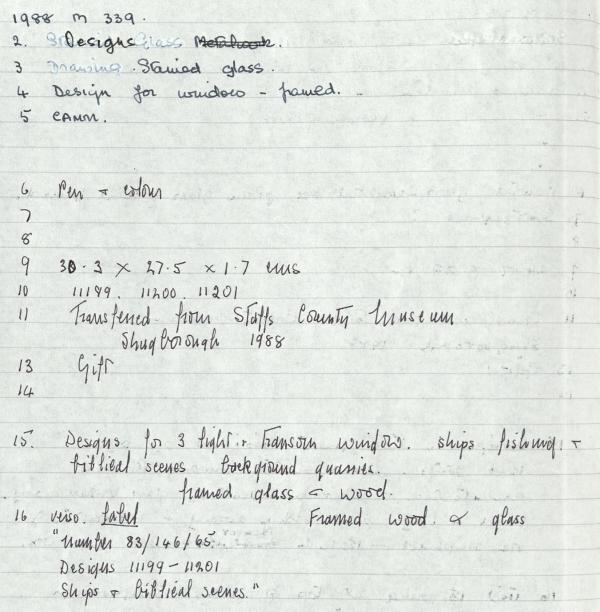 1988 m 339.
2. Designs Glass
3 Drawing. Stained glass.
4 Design for window - framed.
5 CAMM.
6 Pen + colour
7
8
9 30.3 × 27.5 × 1.7 cms
10 11199. 11200. 11201
11 Transferred from Staffs County Museum
Shugborough 1988
13 Gift
14
15. Designs for 3 light + Transom window. ships fishing +
biblical scenes background quarries.
framed glass + wood.
16 verso Label Framed wood & glass
"number 83/146/65
Designs 11199 - 11201
Ships + biblical scenes."